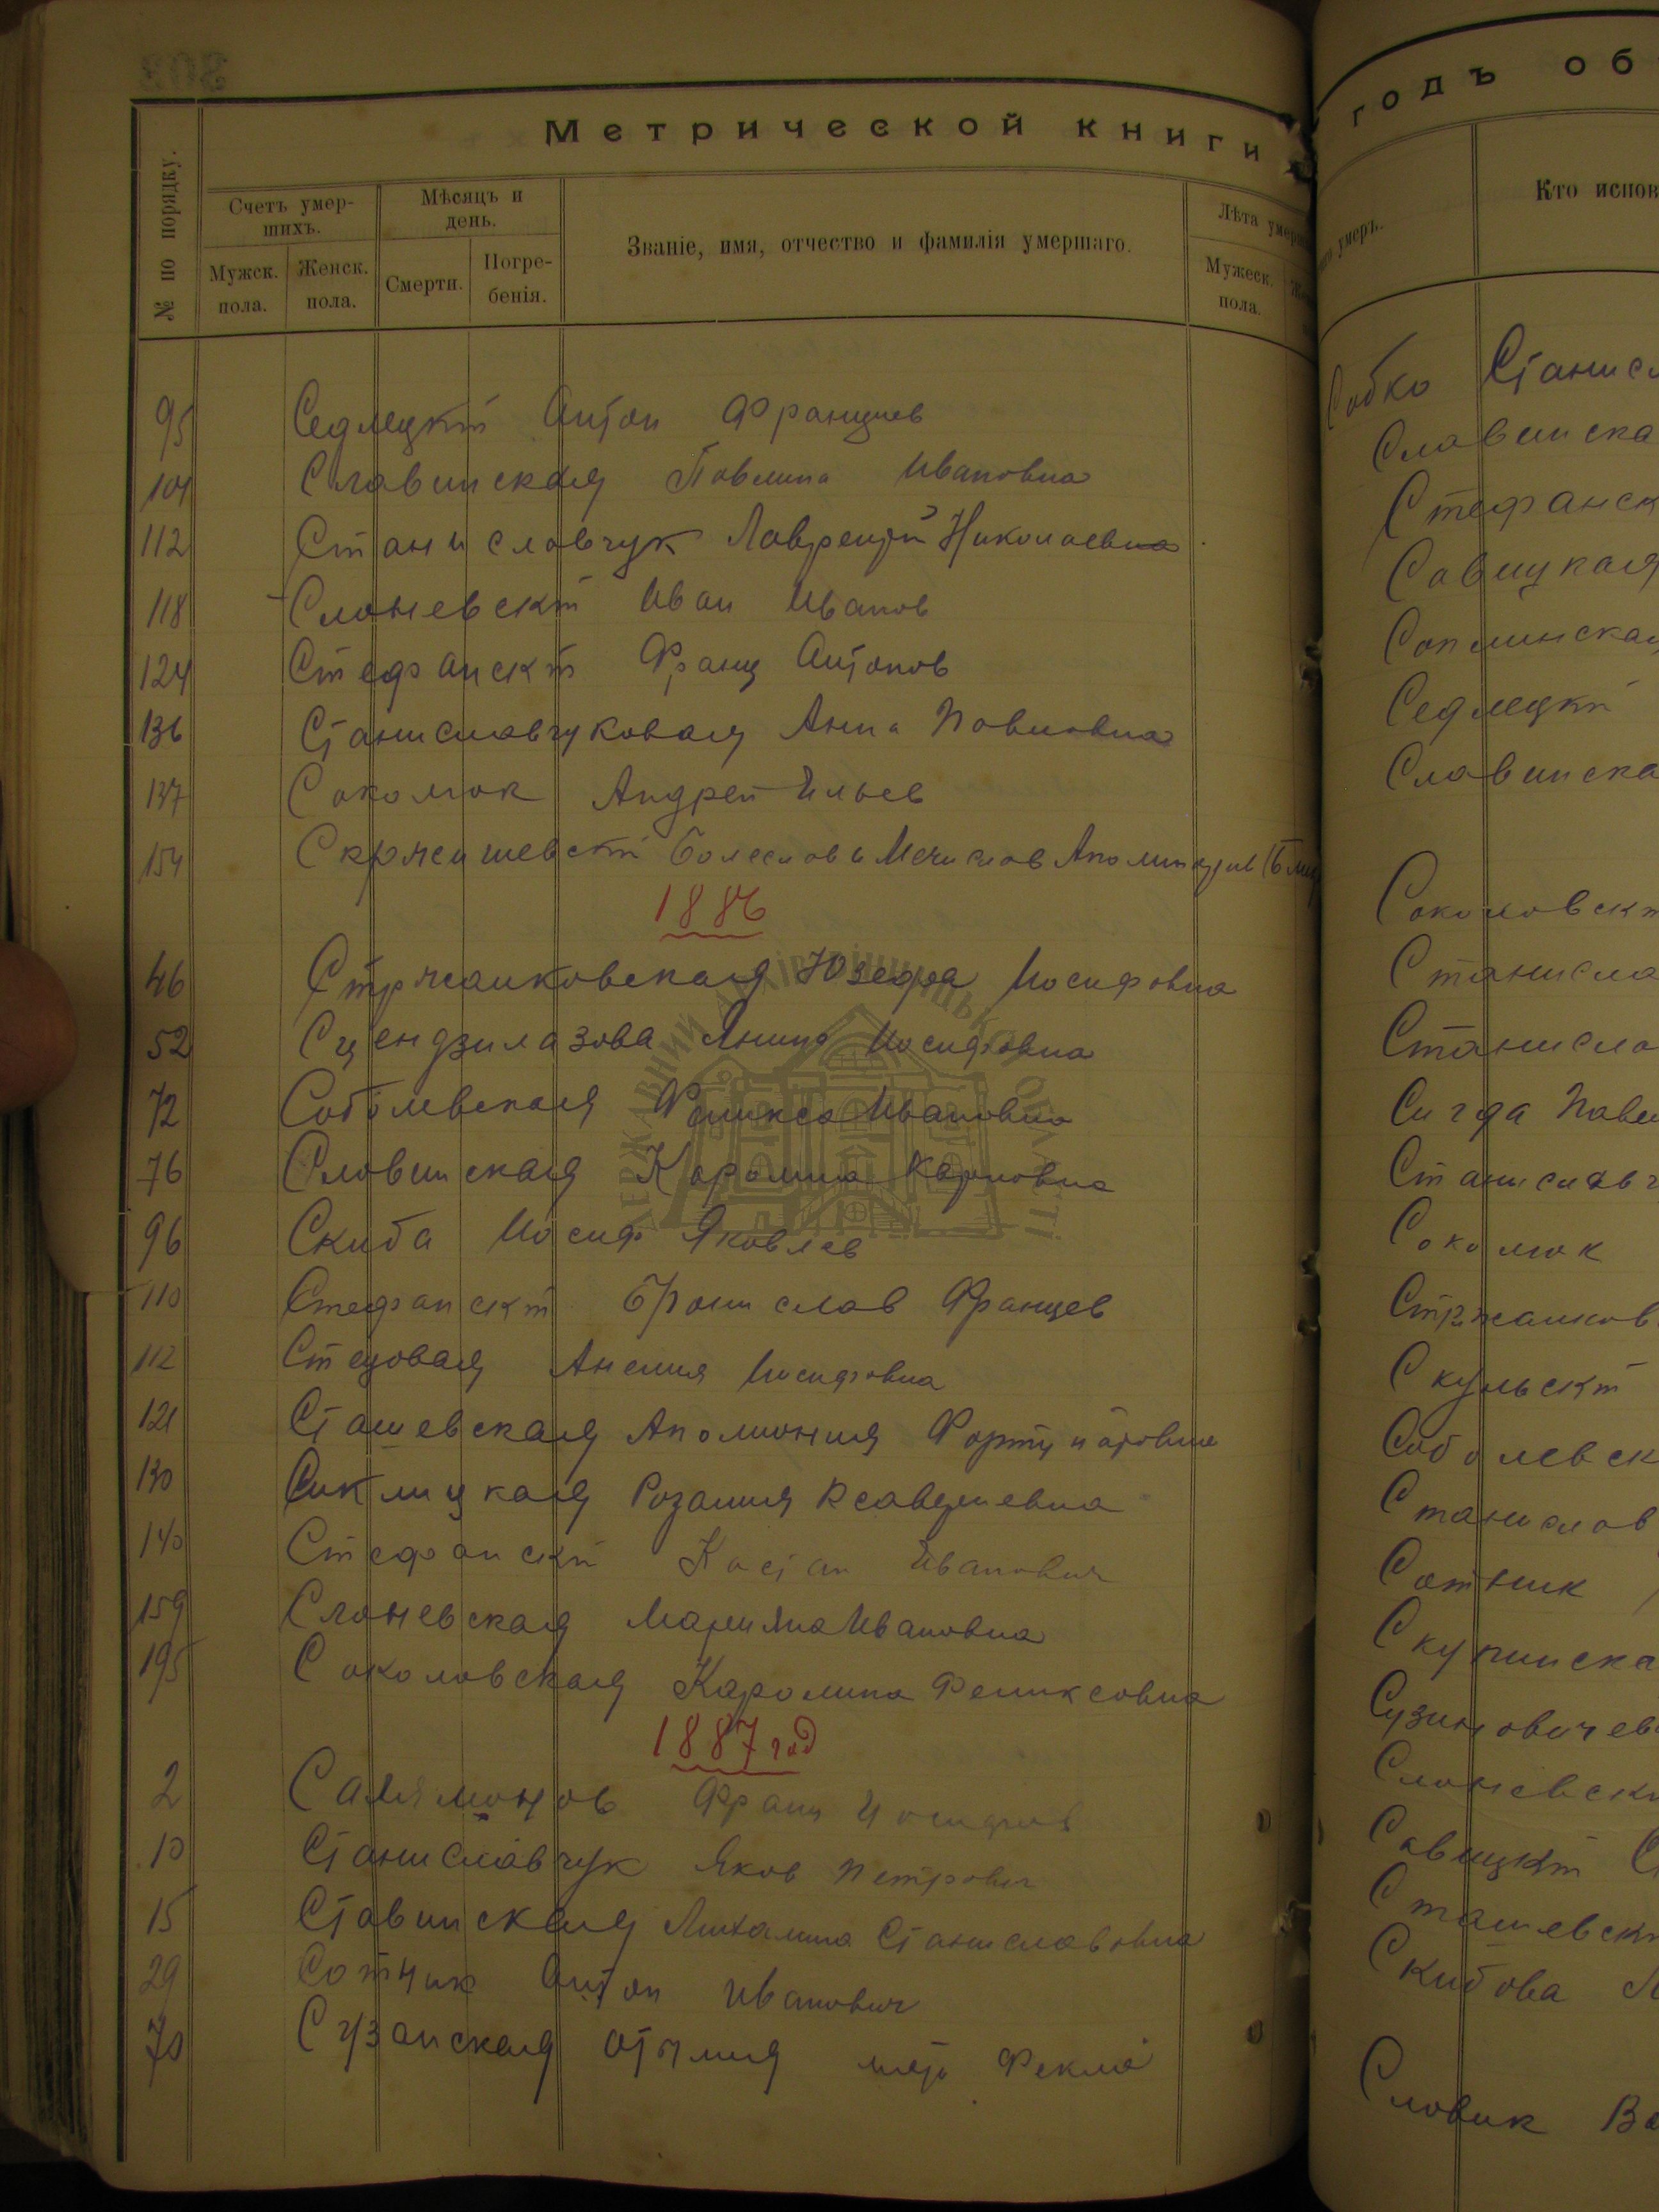 Метрической книги
№ по порядку.
Счетъ умер-
шихъ.
Мужск.
пола.
Женск.
пола.
Мѣсяцъ и
день.
Смерти.
Погре-
бенія.
Званіе, имя, отчество и фамилія умершаго.
Лѣта
Мужеск.
пола.
95 Седлецкій Антон Францев
104 Славинская Павлина Ивановна
112 Станиславчук Лаврентій Николаев
118 Слоневскій Иван Иванов
124 Стефанскій Франц Антонов
136 Станиславчуковая Анна Павловна
137 Соколюк Андрей Ильев
154 Скржешевскій Болеслав Мечислав
1886
46 Стржалковская Юзефа Иосифовна
52 Сцендзилазова Янина Иосифовна
72 Соболевская Феликса Ивановна
76 Словинская Каролина Карповна
96 Скиба Иосиф Яковлев
110 Стефанскій Бронислав Францев
112 Стецовая Анелия Иосифовна
121 Сташевская Аполония
130 Сиклицкая Розалия Ксаверьевна
140 Стефанскій Иванович
159 Слоневская Марияна Ивановна
195 Соколовская Каролина Феликсовна
1887 год
2 Салямонов Франц
10 Станиславчук Яков Петрович
15 Ставинская Михалина Станиславовна
29 Сотник Антон Иванович
70 Сузанская мать Фекла
годъ об
умеръ.
Кто испов
Собко Станисл
Славинска
Стефанск
Савицкая
Соплинская
Седлецкій
Славинска
Соколовскій
Станисла
Станисло
Сигда Павел
Станиславч
Соколюк
Стржалков
Скульскій
Соболевск
Станислов
Сотник
Скупинска
Сузиновичев
Слоневски
Савицкій
Сташевскі
Скибова
Словик